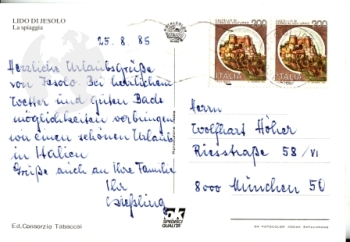 LIDO DI JESOLO
La spiaggia
25. 8. 86
Herzliche Urlaubsgrüße
von Jesolo. Bei herrlichem
Wetter und guten Bade
möglichkeiten verbringen
wir einen schönen Urlaub
in Italien
Grüße auch an Ihre Familie
Ihr
Ed. Consorzio Tabaccai
200
ITALIA
200
ITALIA
Herrn
Wolfhart Höher
Riesstraße 58/VI
8000 München 50
QUALITÄT